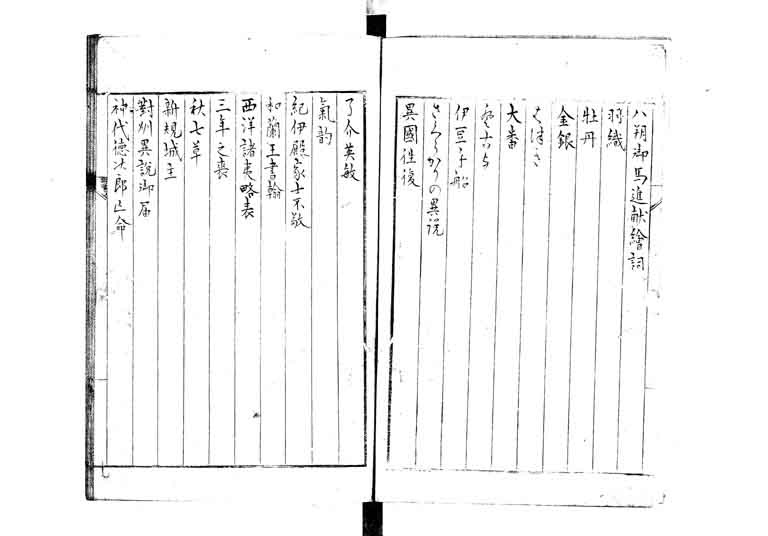 八朔御馬進献繪詞
羽織
牡丹
金銀
大番
伊豆千船
さくらかりの異説
異國往復
了介英敏
氣韵
紀伊殿家士不敬
和蘭王書翰
西洋諸夷略表
三年之喪
秋七草
新規城主
對刕異説御届
神代徳次郎亡命